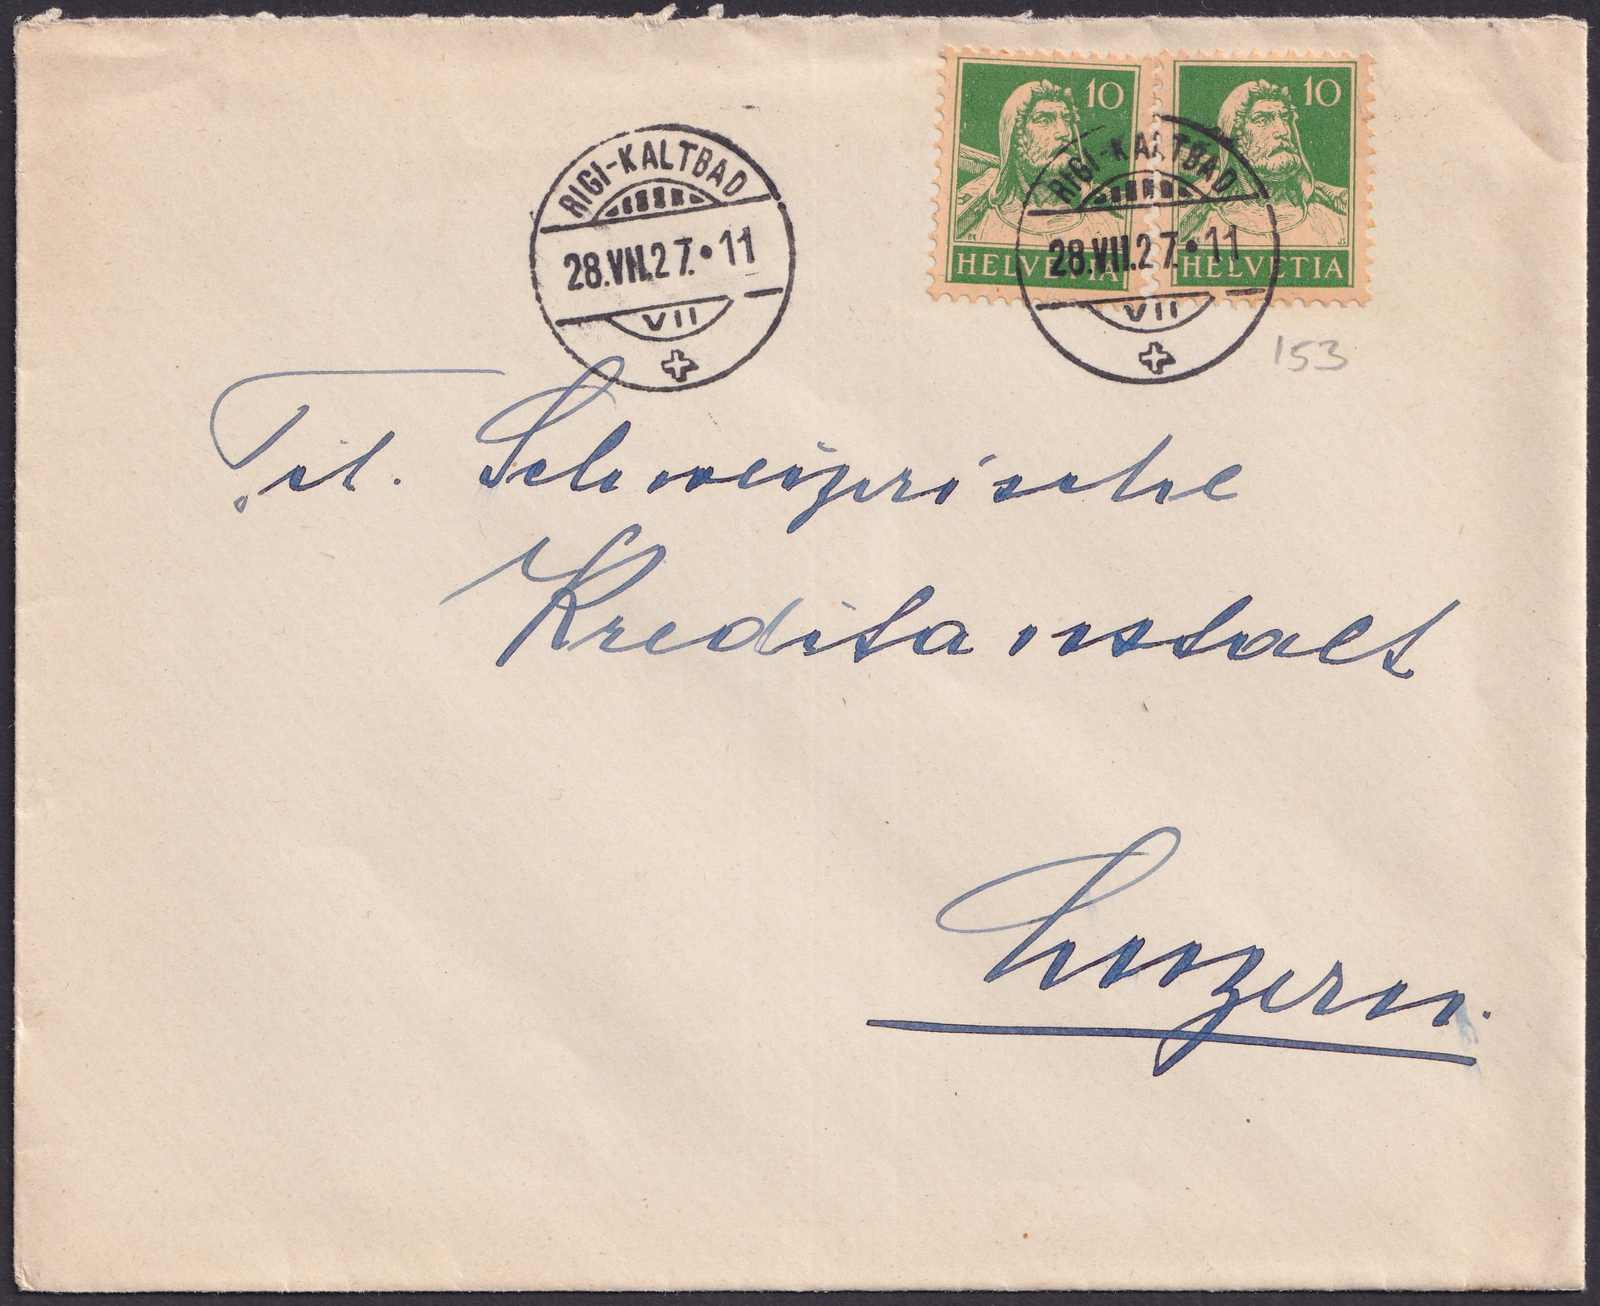 10 10
HELVETIA HELVETIA
RIGI-KALTBAD
28.VII.27.•11
VII
RIGI-KALTBAD
28.VII.27.•11
VII
153
Tit. Schweizerische
Kreditanstalt
Luzern.